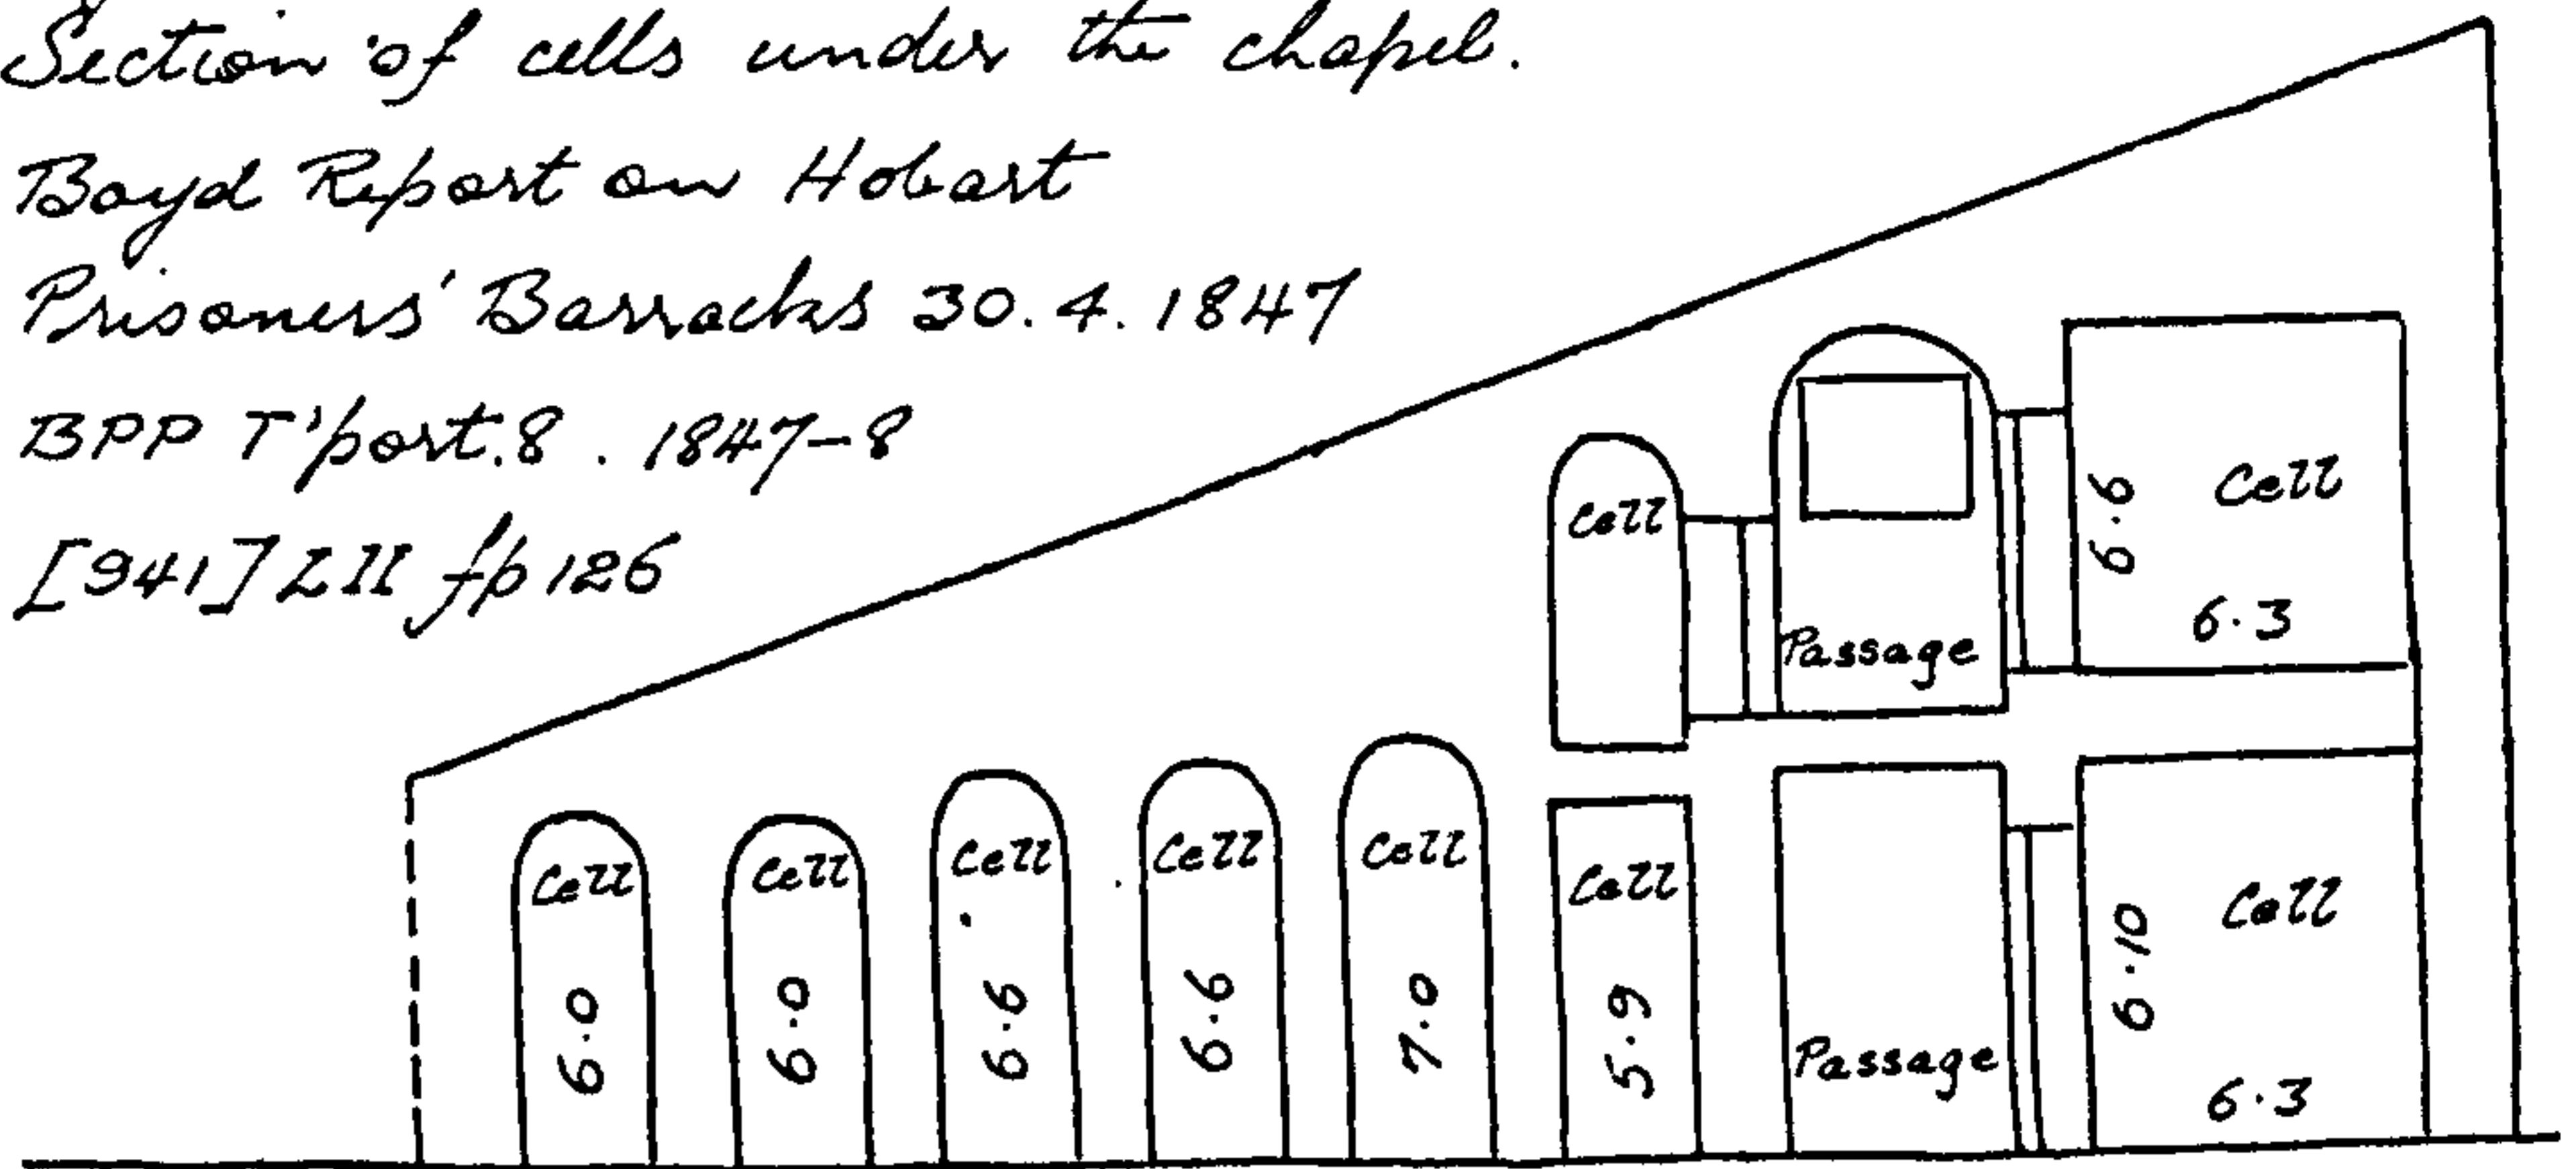 Section of cells under the chapel.
Boyd Report on Hobart
Prisoners' Barracks 30.4.1847
BPP T'port.8. 1847-8
[941] LII fp 126
Cell
6.6
6.3
Cell
Passage
Cell
6.0
Cell
6.0
Cell
6.6
Cell
6.6
Cell
7.0
Cell
5.9
Passage
Cell
6.10
6.3